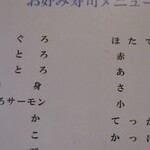 お好み寿司メニュー
ぐろ
とろ
とろ
身
ろサーモン
か
こ
び
ほたて
赤
あさ
小
てっか
かっぱ